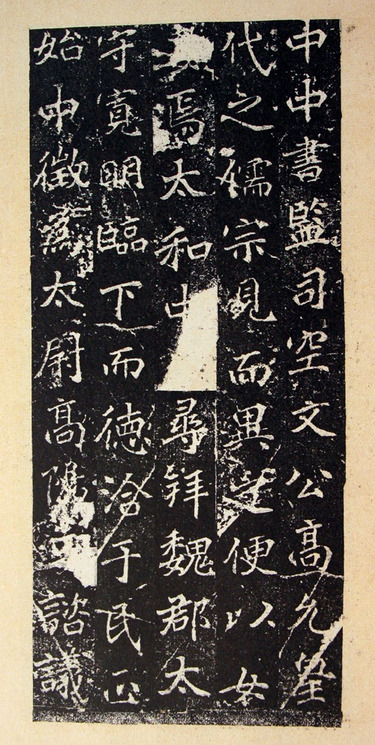 中中書監司空文公高允皇
代之儒宗見而異之便以女
焉太和中尋拜魏郡太
守寬明臨下而德洽于民正
始中徵為太尉高陽王諮議